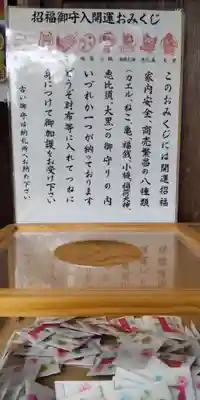 招福御守入開運おみくじ
このおみくじには開運招福
家内安全、商売繁昌の八種類
(カエル、ねこ、亀、福銭、小槌、招福大神、
恵比須、大黒)の御守りの内
いづれか一つが納っております
どうぞ財布等に入れてつねに
身につけて御加護をお受け下さい
古い御守は納札所へお納め下さい